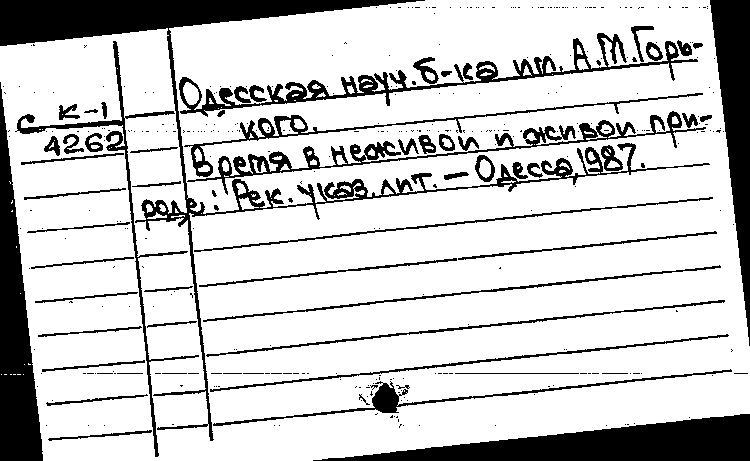 Одесская науч. б-ка им. А.М.Горь-
кого.
с К-1
4262
Время в неживой и живой при-
роде: Рек. указ. лит. — Одесса, 1987.